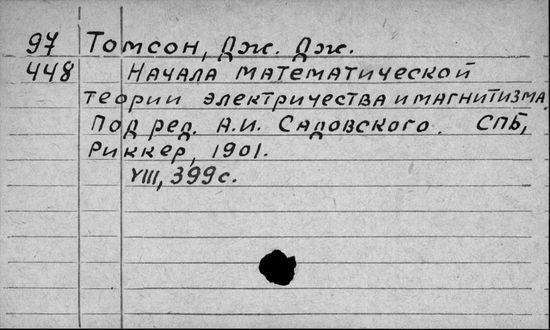 97 Томсон, Дж. Дж.
448 Начала математической
теории электричества и магнитизма.
Под ред. А.И. Садовского. СПБ,
Риккер, 1901.
VIII, 399 с.